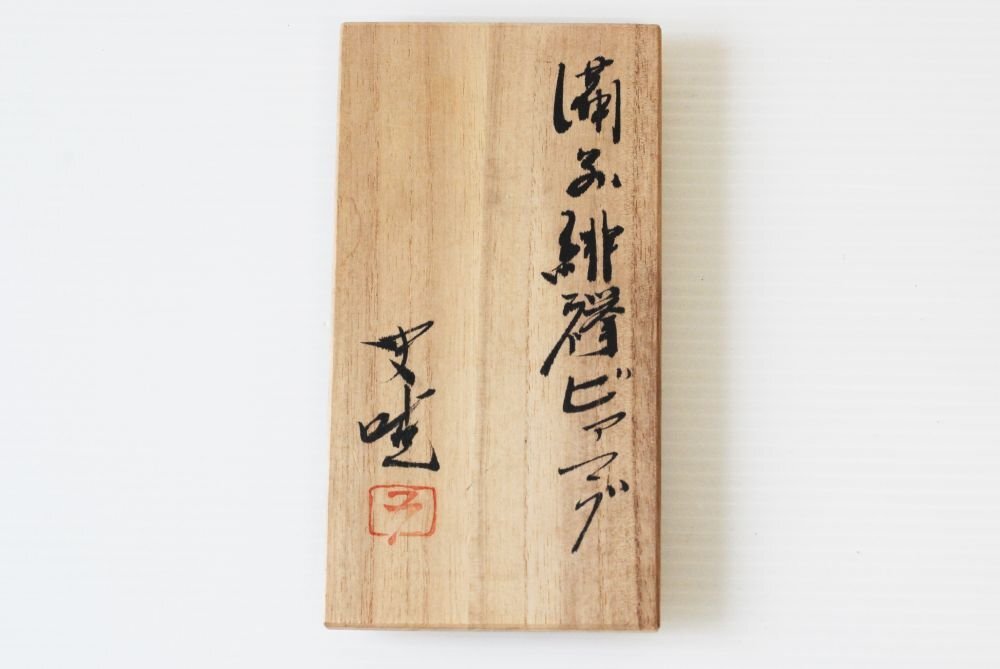 備前緋襷ビアマグ
暁